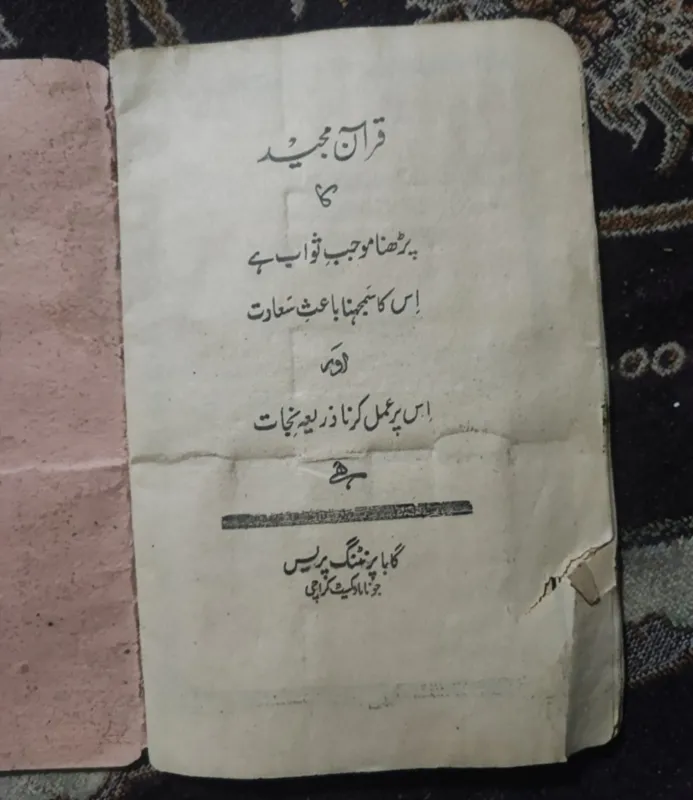 قرآن مجید
کا
پڑھنا موجبِ ثواب ہے
اِس کا سَمجہنا باعثِ سَعادت
اوَر
اِس پر عمل کرنا ذریعہ نجات
ہے
گابا پرنٹنگ پریس
جونا مارکیٹ کراچی